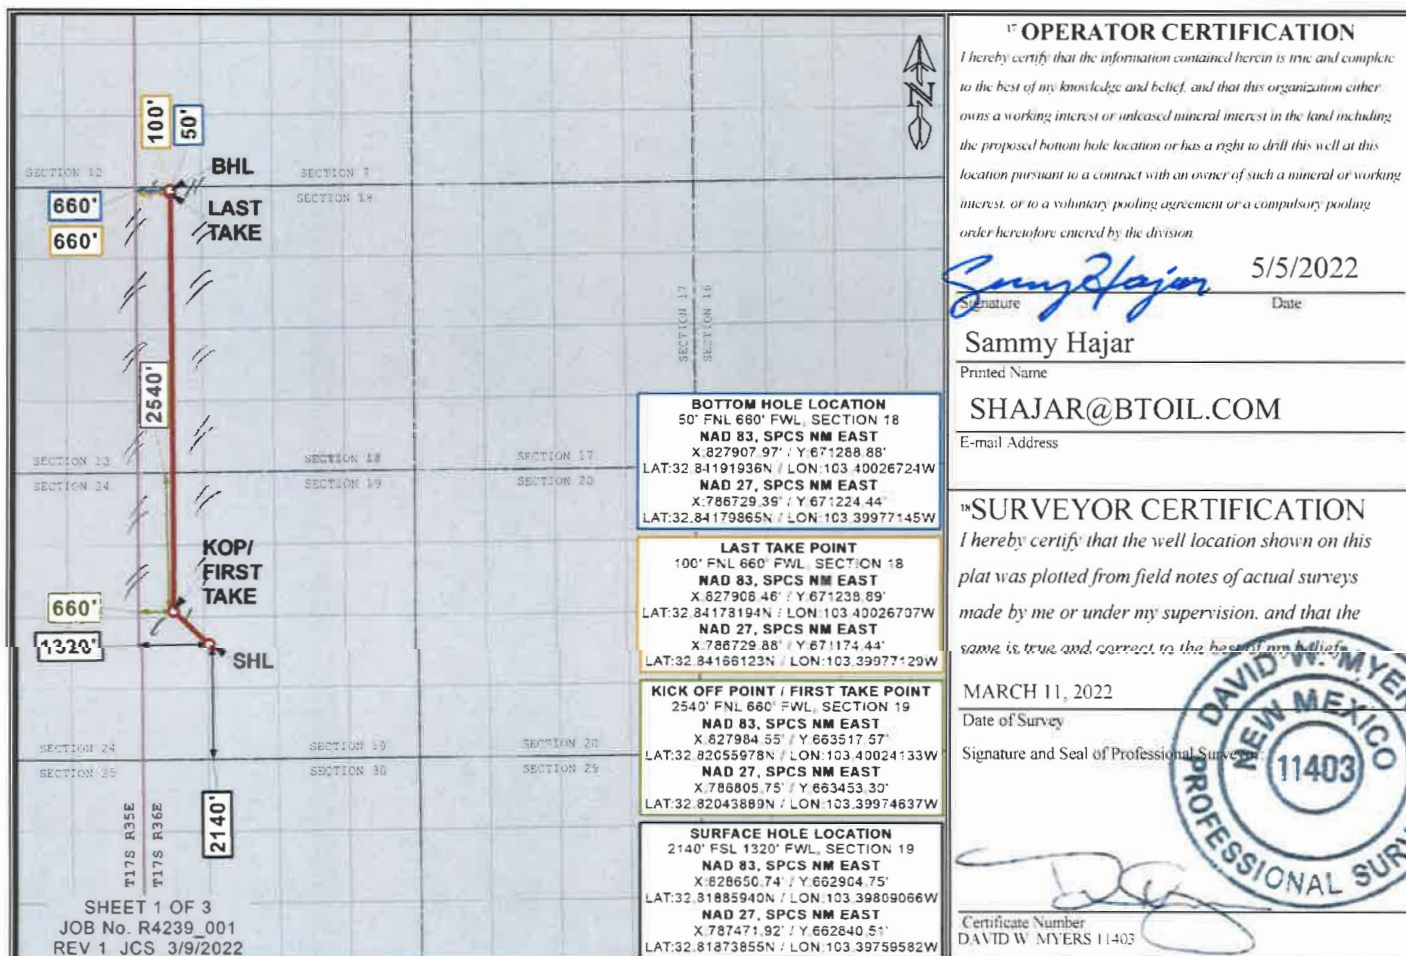 100'
50'
BHL
SECTION 12
SECTION 7
SECTION 18
660'
LAST
TAKE
660'
SECTION 17
SECTION 16
2540'
SECTION 13
SECTION 18
SECTION 17
SECTION 24
SECTION 19
SECTION 20
KOP/
FIRST
TAKE
660'
1320'
SHL
SECTION 24
SECTION 19
SECTION 20
SECTION 25
SECTION 30
SECTION 29
2140'
T17S R35E
T17S R36E
SHEET 1 OF 3
JOB No. R4239_001
REV 1 JCS 3/9/2022
N
BOTTOM HOLE LOCATION
50' FNL 660' FWL, SECTION 18
NAD 83, SPCS NM EAST
X:827907.97' / Y:671288.88'
LAT:32.84191936N / LON:103.40026724W
NAD 27, SPCS NM EAST
X:786729.39' / Y:671224.44'
LAT:32.84179865N / LON:103.39977145W
LAST TAKE POINT
100' FNL 660' FWL, SECTION 18
NAD 83, SPCS NM EAST
X:827908.46' / Y:671238.89'
LAT:32.84178194N / LON:103.40026707W
NAD 27, SPCS NM EAST
X:786729.88' / Y:671174.44'
LAT:32.84166123N / LON:103.39977129W
KICK OFF POINT / FIRST TAKE POINT
2540' FNL 660' FWL, SECTION 19
NAD 83, SPCS NM EAST
X:827984.55' / Y:663517.57'
LAT:32.82055978N / LON:103.40024133W
NAD 27, SPCS NM EAST
X:786805.75' / Y:663453.30'
LAT:32.82043889N / LON:103.39974637W
SURFACE HOLE LOCATION
2140' FSL 1320' FWL, SECTION 19
NAD 83, SPCS NM EAST
X:828650.74' / Y:662904.75'
LAT:32.81885940N / LON:103.39809066W
NAD 27, SPCS NM EAST
X:787471.92' / Y:662840.51'
LAT:32.81873855N / LON:103.39759582W
17 OPERATOR CERTIFICATION
I hereby certify that the information contained herein is true and complete
to the best of my knowledge and belief, and that this organization either
owns a working interest or unleased mineral interest in the land including
the proposed bottom hole location or has a right to drill this well at this
location pursuant to a contract with an owner of such a mineral or working
interest, or to a voluntary pooling agreement or a compulsory pooling
order heretofore entered by the division.
Sammy Hajar 5/5/2022
Signature Date
Sammy Hajar
Printed Name
SHAJAR@BTOIL.COM
E-mail Address
18 SURVEYOR CERTIFICATION
I hereby certify that the well location shown on this
plat was plotted from field notes of actual surveys
made by me or under my supervision, and that the
same is true and correct to the best of my belief.
MARCH 11, 2022
Date of Survey
Signature and Seal of Professional Surveyor:
DAVID W. MYERS
NEW MEXICO
11403
PROFESSIONAL SURV
Certificate Number
DAVID W. MYERS 11403